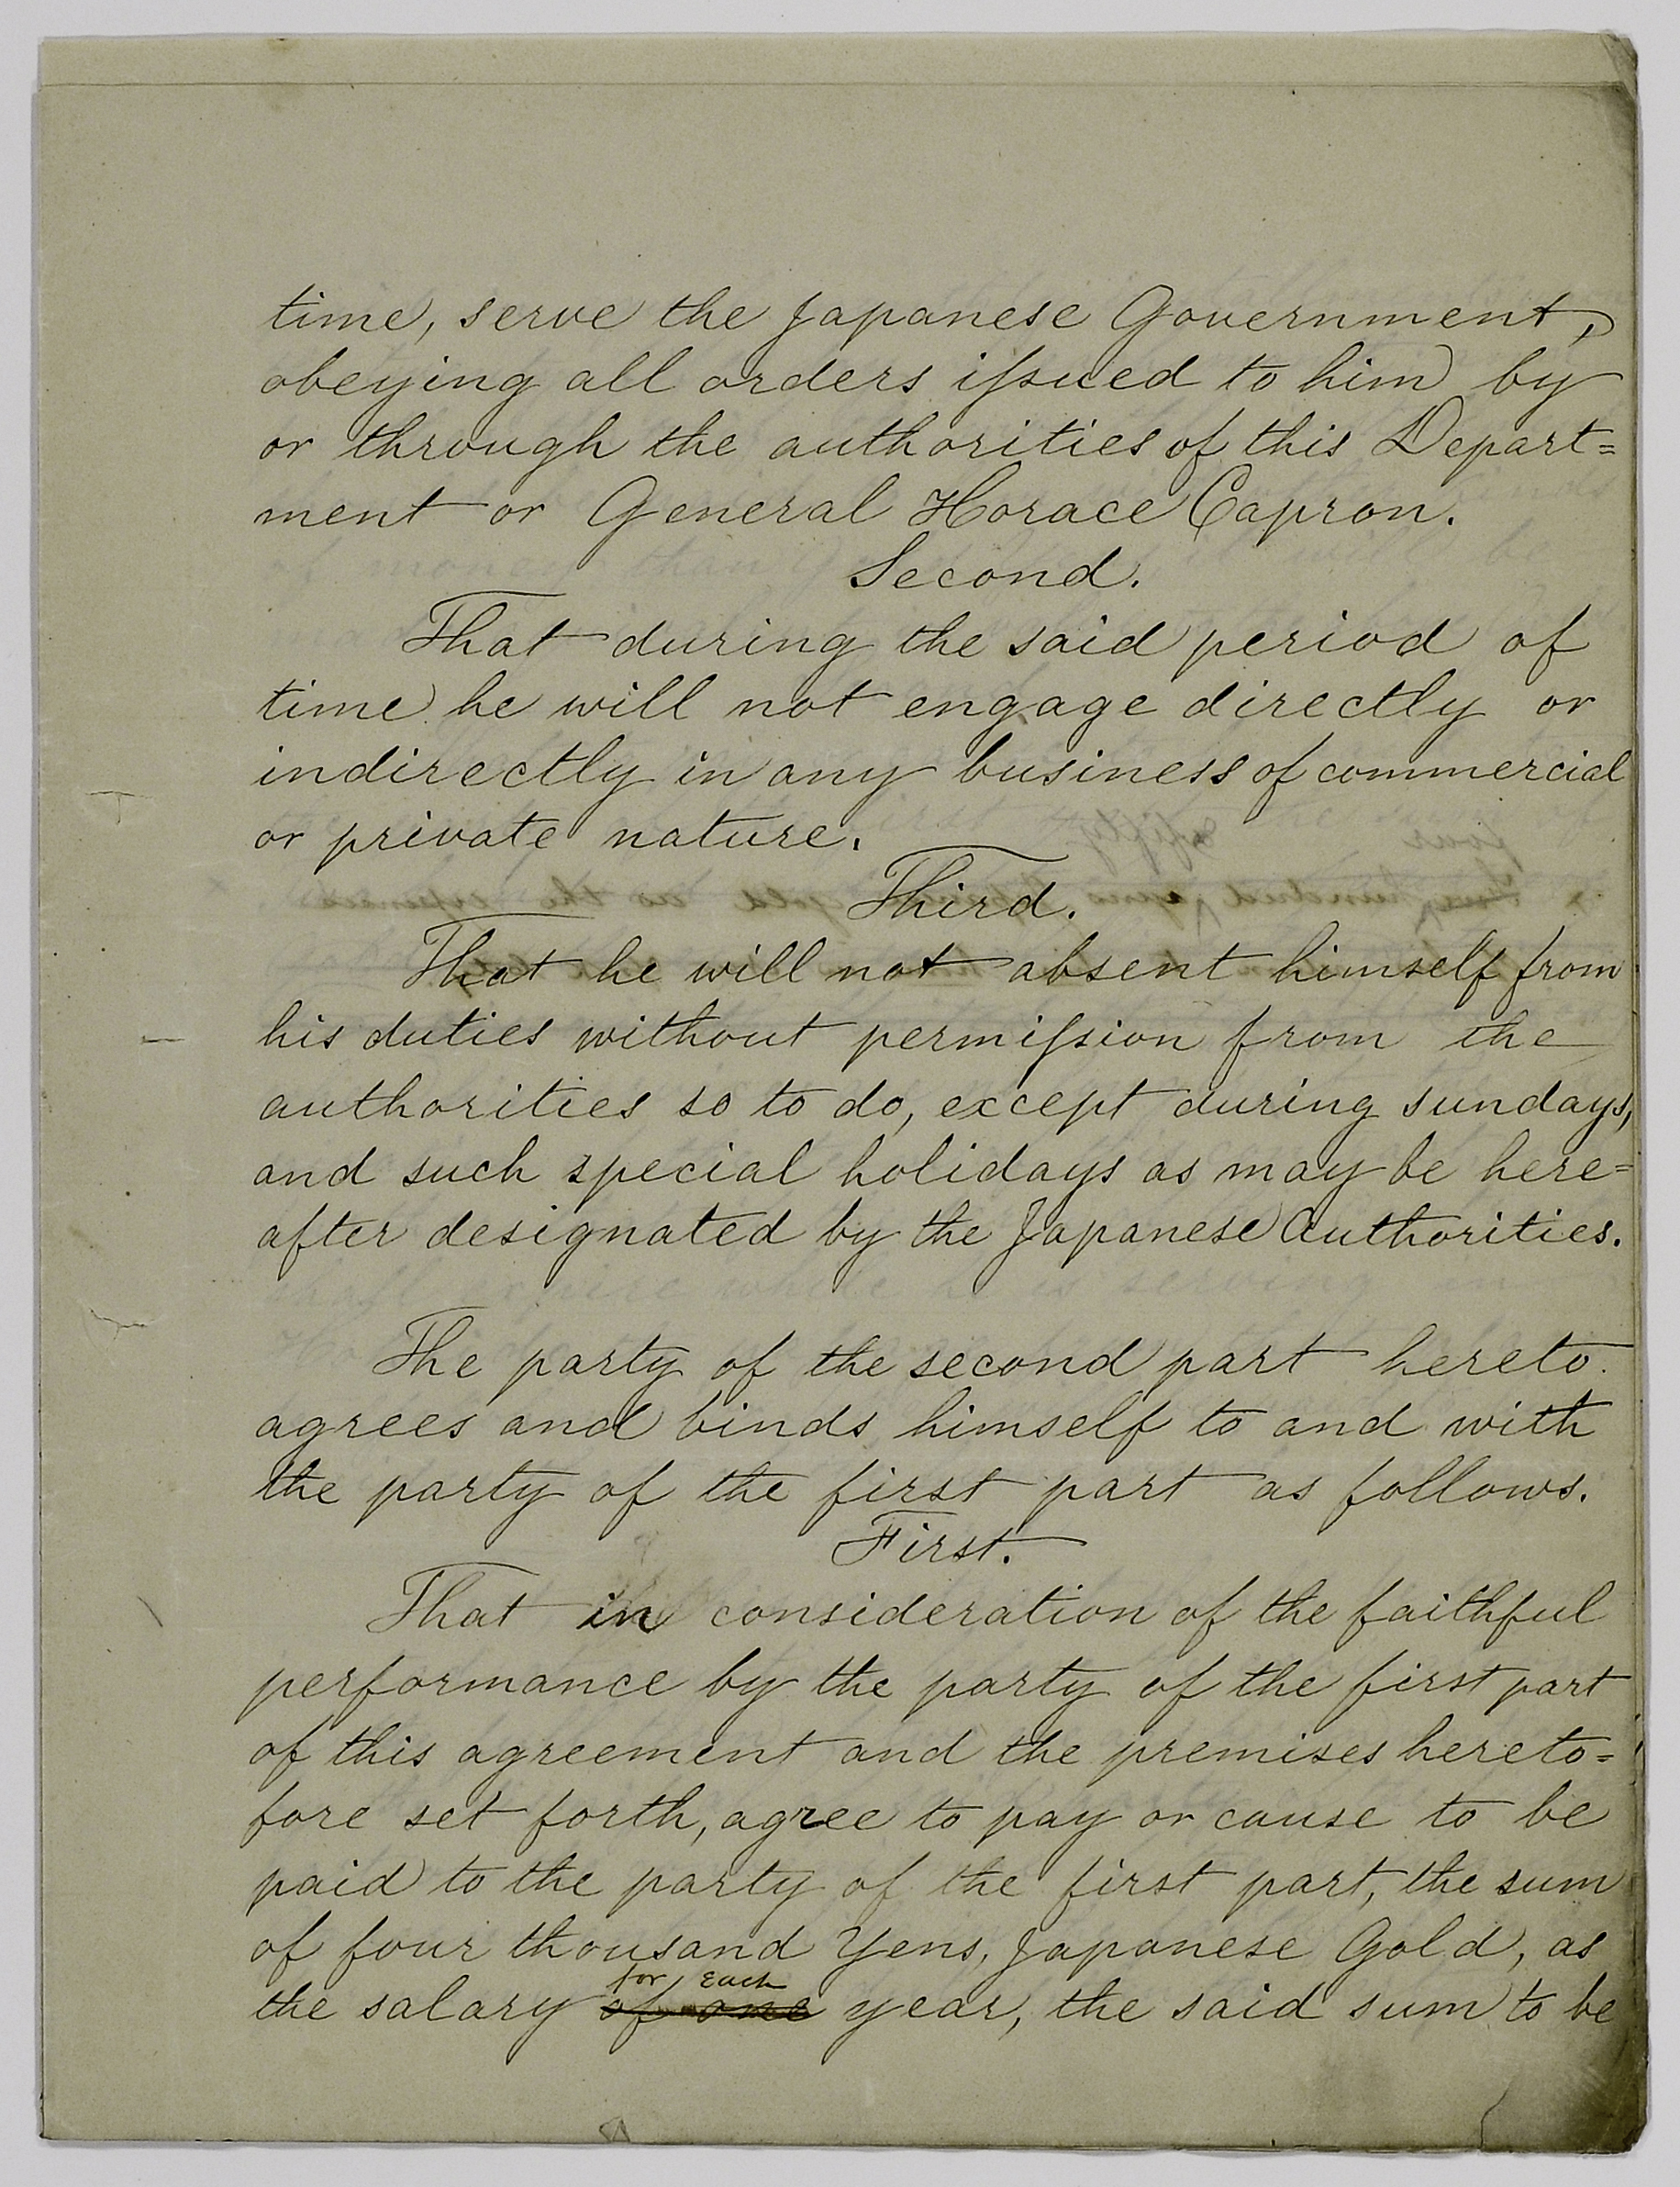 time, serve the Japanese Government,
obeying all orders issued to him by
or through the authorities of this Depart=
ment or General Horace Capron.
Second.
That during the said period of
time he will not engage directly or
indirectly in any business of commercial
or private nature.
Third.
That he will not absent himself from
his duties without permission from the
authorities so to do, except during sundays,
and such special holidays as may be here=
after designated by the Japanese Authorities.
The party of the second part hereto
agrees and binds himself to and with
the party of the first part as follows.
First.
That in consideration of the faithful
performance by the party of the first part
of this agreement and the premises hereto=
fore set forth, agree to pay or cause to be
paid to the party of the first part, the sum
of four thousand Yens, Japanese Gold, as
for Each
the salary of one year, the said sum to be